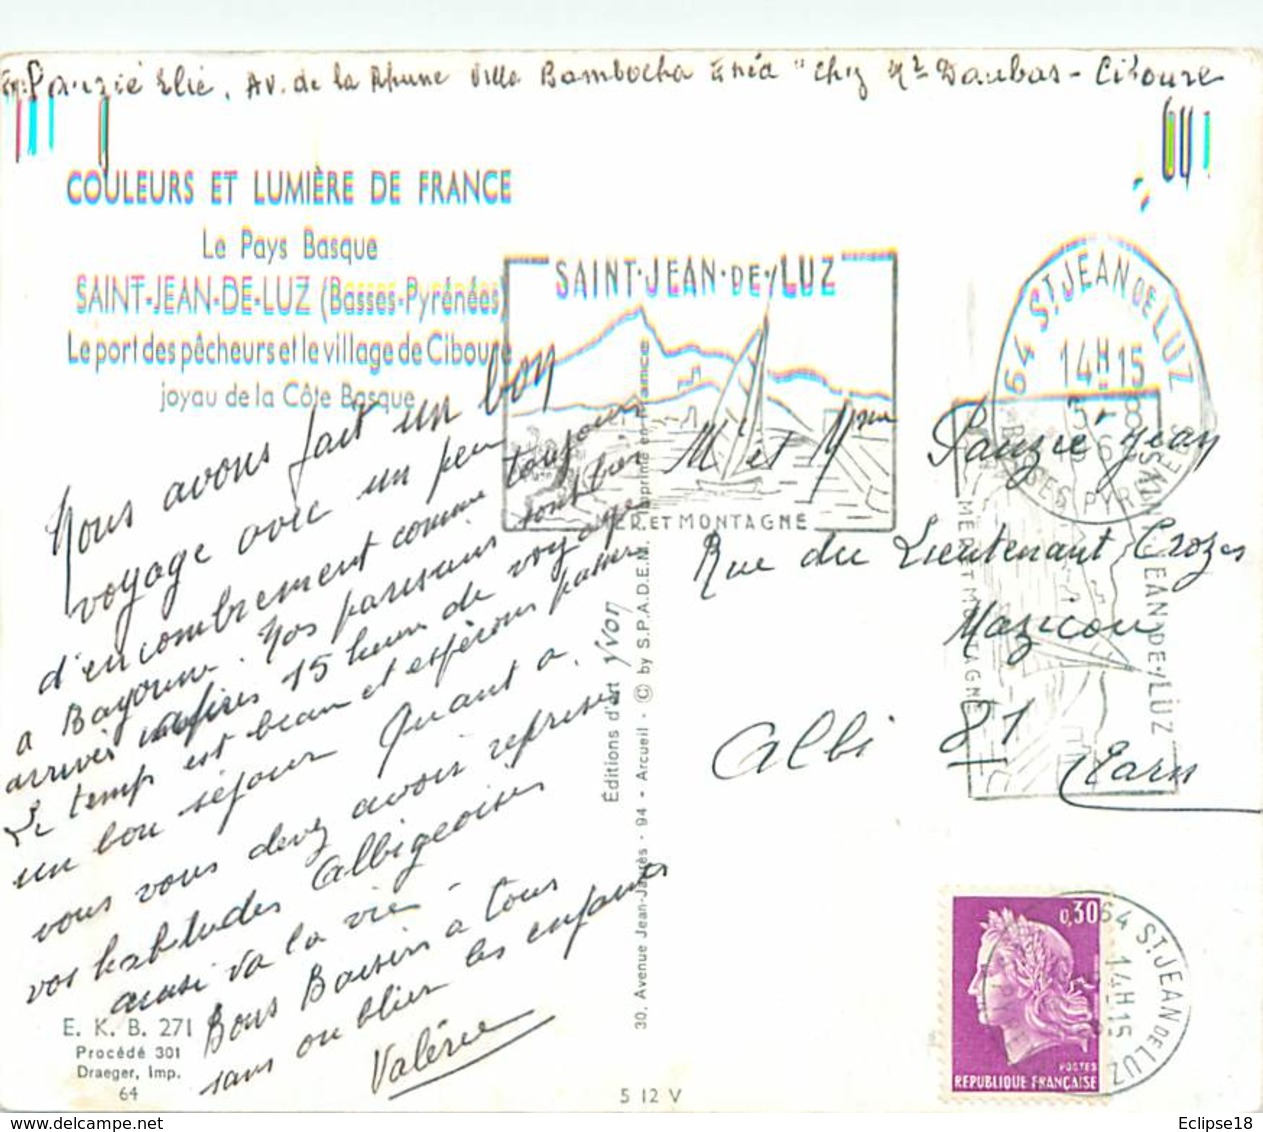 Exp: Pauzié Elie, Av. de la Rhune Villa Bambocha Enéa "chez Mr Daubas - Ciboure
COULEURS ET LUMIÈRE DE FRANCE
Le Pays Basque
SAINT-JEAN-DE-LUZ (Basses-Pyrénées)
Le port des pêcheurs et le village de Ciboure
joyau de la Côte Basque
Nous avons fait un bon
voyage avec un peu
d'encombrement comme toujours
a Bayonne. Nos parisiens sont bien
arrivés après 15 heures de voyage
Le temps est beau et espérons passer
un bon séjour Quant a
vous vous devez avoir repris
vos habitudes Albigeoises
ainsi va la vie
Bons Baisers a tous
sans oublier les enfants
Valérie
E. K. B. 271
Procédé 301
Draeger, Imp.
64
5 12 V
Éditions d'art Yvon
30, Avenue Jean-Jaurès - 94 - Arcueil - © by S.P.A.D.E.M. Imprimé en France
SAINT-JEAN-DE-LUZ
MER ET MONTAGNE
64 ST JEAN DE LUZ
14H15
BSES PYRENEES
SAINT-JEAN-DE-LUZ
MER ET MONTAGNE
Mr et Mme Pauzié Jean
Rue du Lieutenant Crozes
Mazicou
Albi 81
Tarn
0,30
POSTES
REPUBLIQUE FRANÇAISE
64 ST JEAN DE LUZ
14H15
Eclipse18